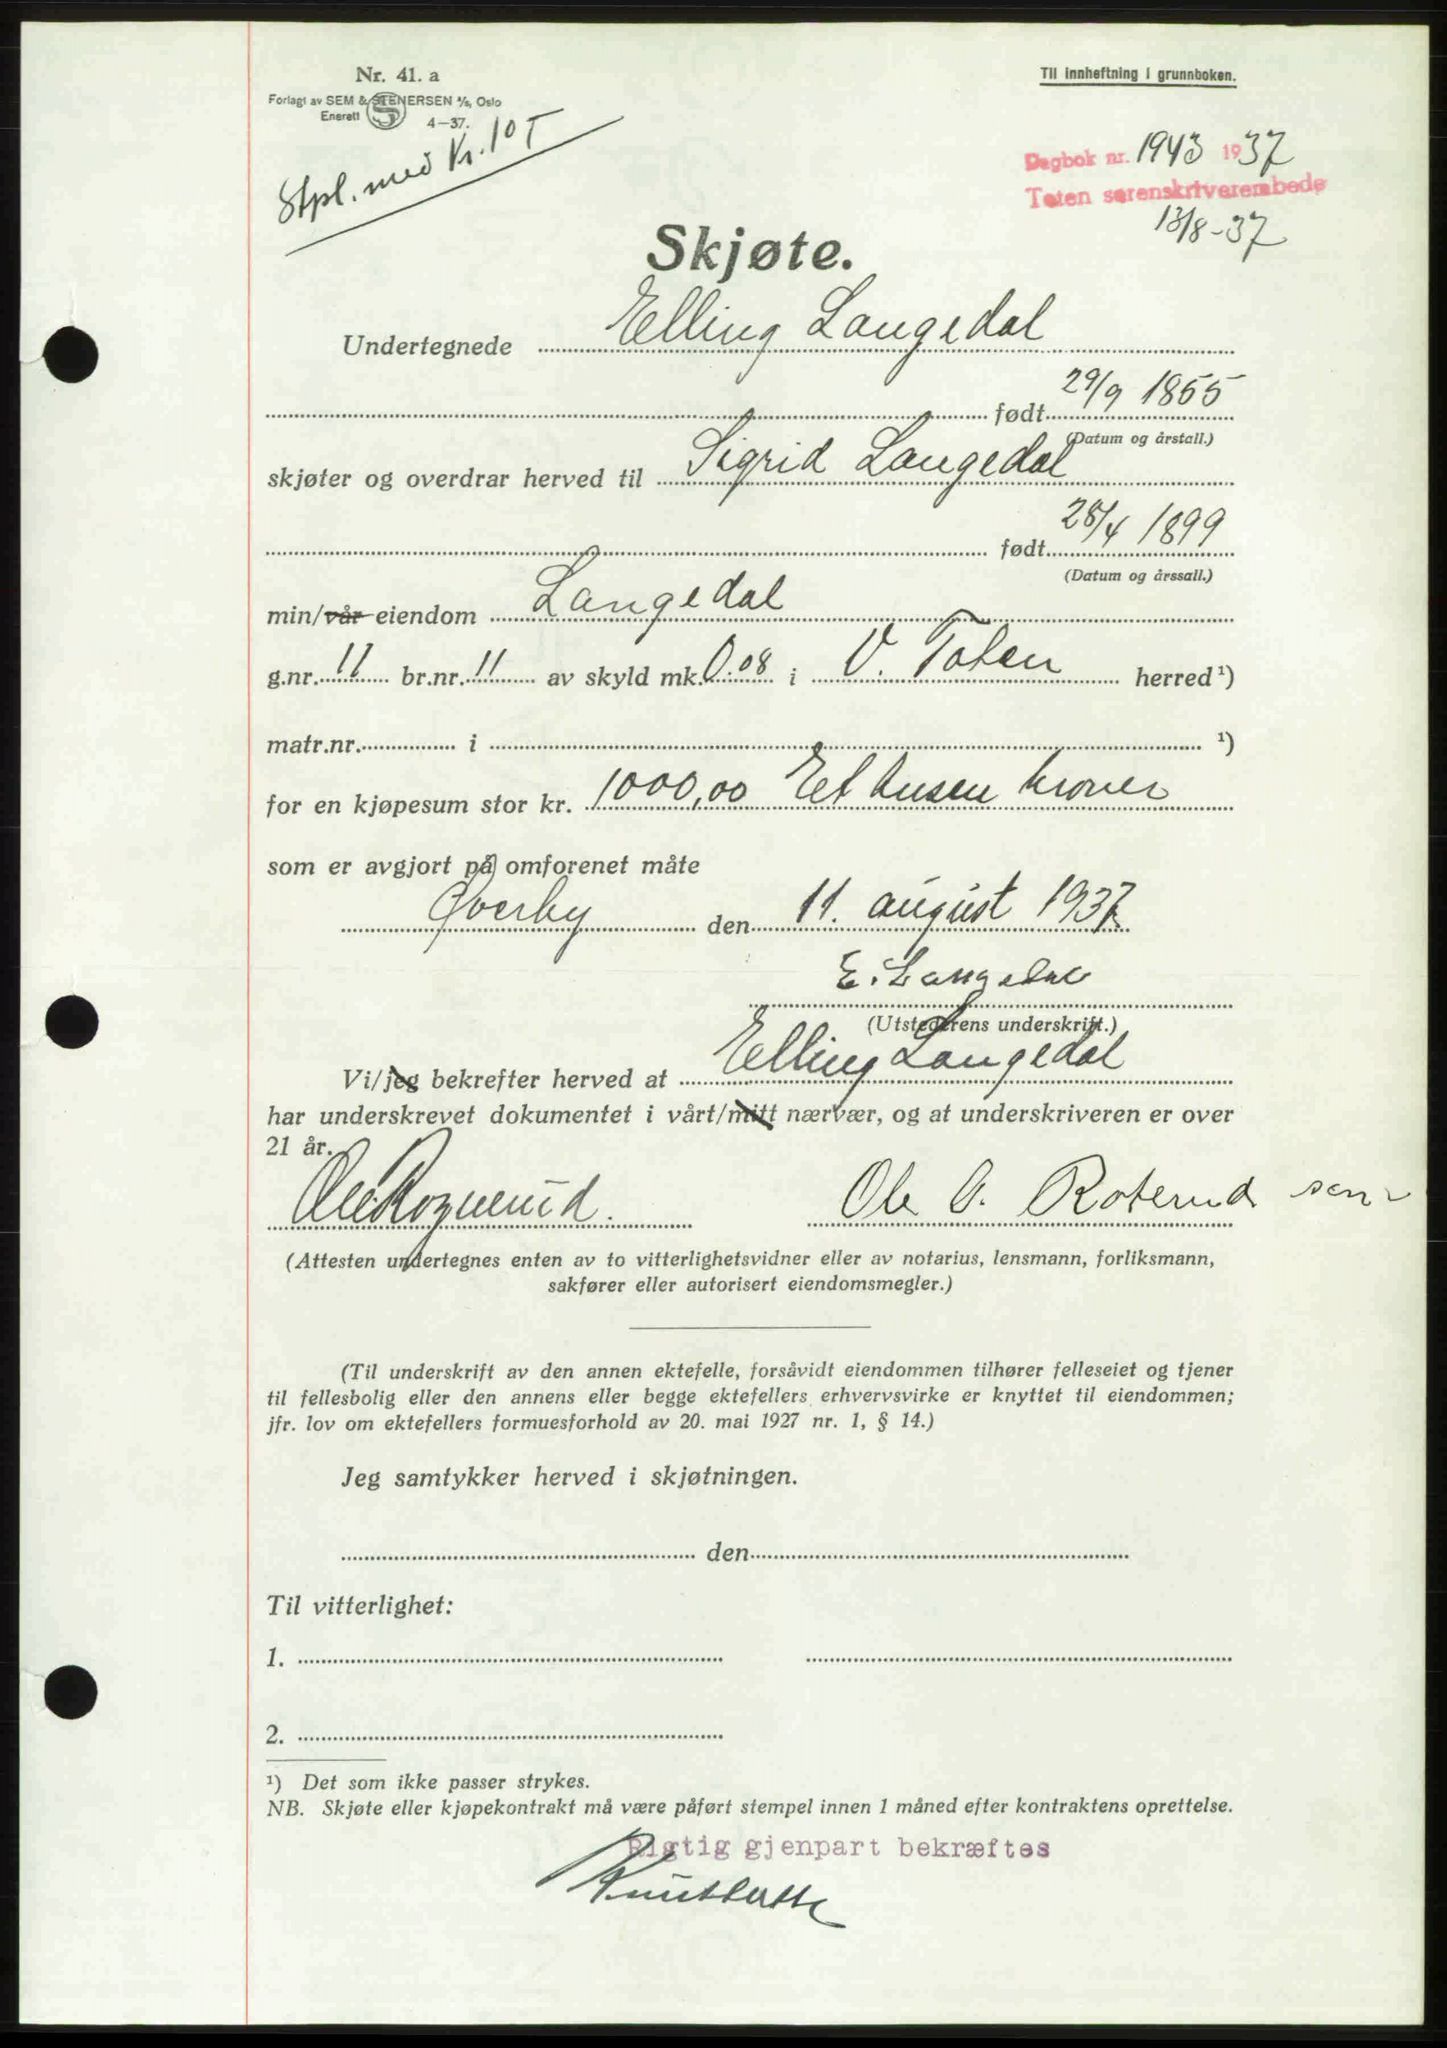 Nr. 41. a
Forlagt av SEM & STENERSEN A/s, Oslo
Enerett 4—37.
Til innheftning i grunnboken.
Stpl. med Kr. 10 T
Dagbok nr. 1943 1937
Toten sorenskriverembede
13/8-37
Skjøte.
Undertegnede Elling Langedal
født 29/9 1855
(Datum og årstall.)
skjøter og overdrar herved til Sigrid Langedal
født 28/4 1899
(Datum og årssall.)
min/vår eiendom Langedal
g.nr. 11 br.nr. 11 av skyld mk. 0.08 i V. Toten herred ¹)
matr.nr. i ¹)
for en kjøpesum stor kr. 1000,00 Et tusen kroner
som er avgjort på omforenet måte
Øverby den 11. august 1937
E. Langedal
(Utstederens underskrift.)
Vi/jeg bekrefter herved at Elling Langedal
har underskrevet dokumentet i vårt/mitt nærvær, og at underskriveren er over
21 år.
Ole Rognerud. Ole O. Roterud sen
(Attesten undertegnes enten av to vitterlighetsvidner eller av notarius, lensmann, forliksmann,
sakfører eller autorisert eiendomsmegler.)
(Til underskrift av den annen ektefelle, forsåvidt eiendommen tilhører felleseiet og tjener
til fellesbolig eller den annens eller begge ektefellers erhvervsvirke er knyttet til eiendommen;
jfr. lov om ektefellers formuesforhold av 20. mai 1927 nr. 1, § 14.)
Jeg samtykker herved i skjøtningen.
den
Til vitterlighet:
1.
2.
¹) Det som ikke passer strykes.
NB. Skjøte eller kjøpekontrakt må være påført stempel innen 1 måned efter kontraktens oprettelse.
Rigtig gjenpart bekræftes